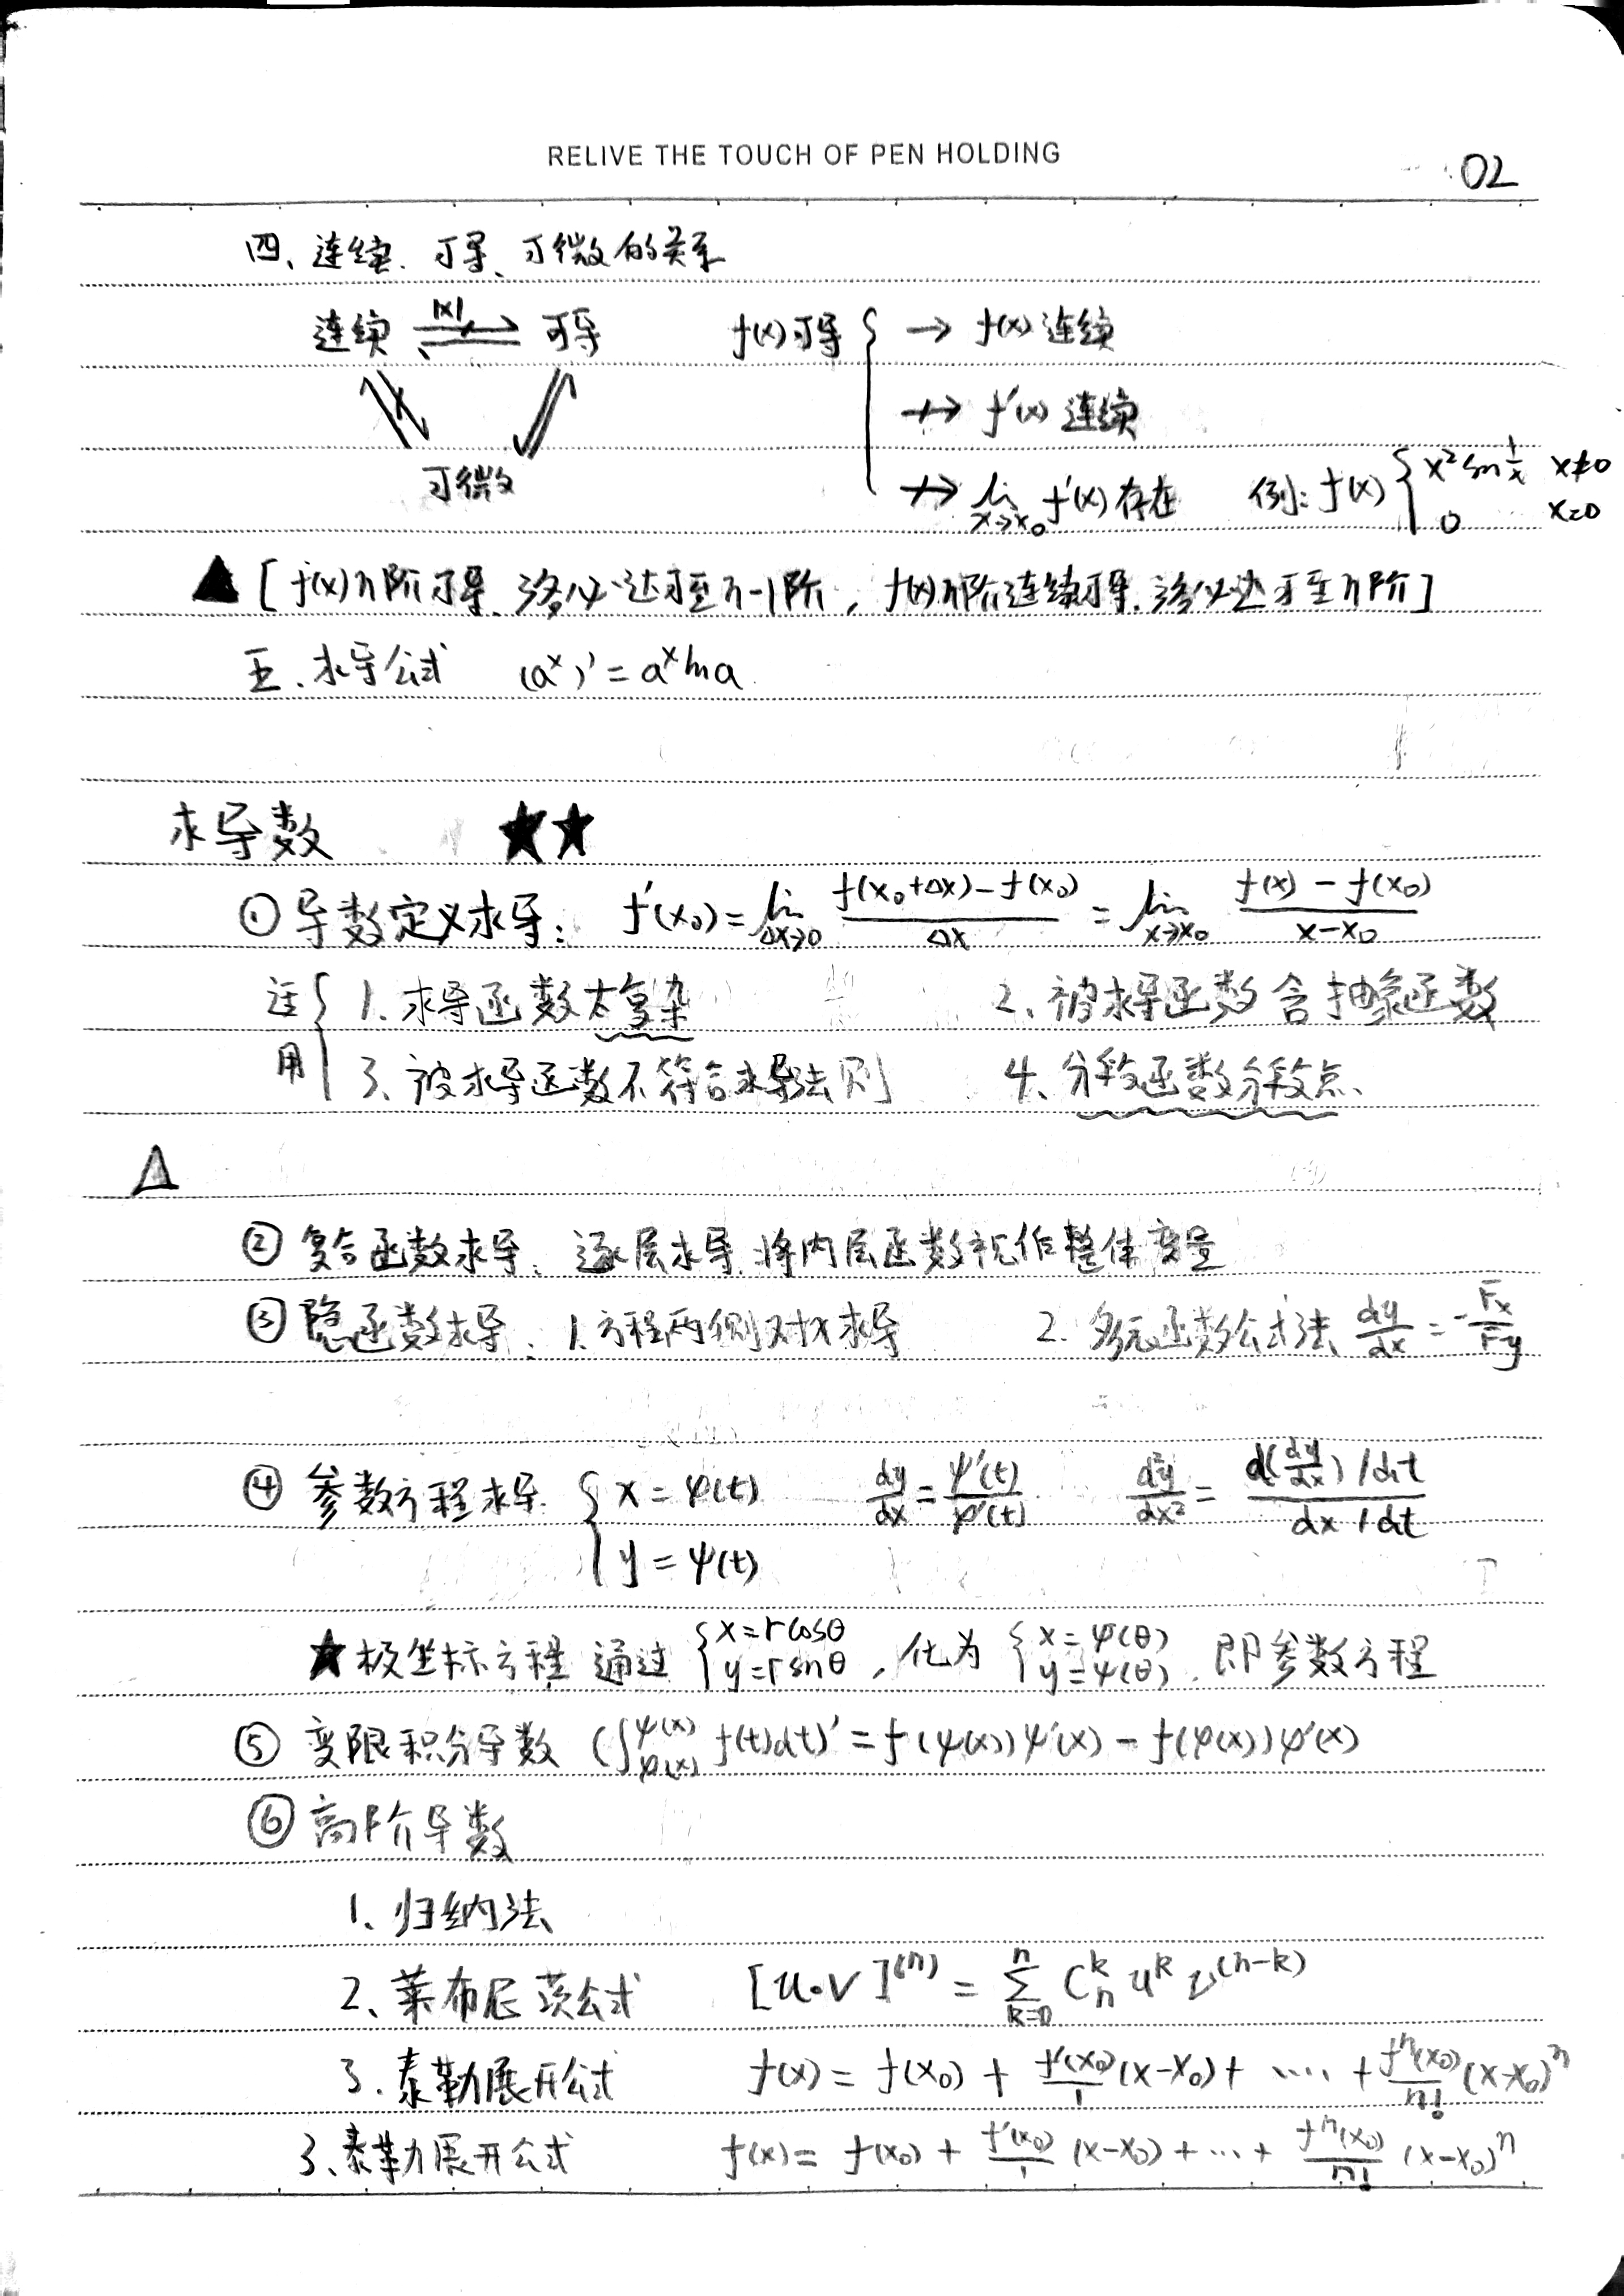 RELIVE THE TOUCH OF PEN HOLDING
02
四、连续、可导、可微的关系
连续 |x| 可导 f(x)可导 { → f(x)连续
↛ f'(x)连续
可微 ↛ lim x→x₀ f'(x)存在 例: f(x) { x² sin 1/x x≠0
0 x=0
▲ [ f(x) n阶可导、洛必达可至n-1阶, f(x) n阶连续可导、洛必达可至n阶 ]
五、求导公式 (aˣ)' = aˣ ln a
求导数 ★★
① 导数定义求导: f'(x₀) = lim Δx→0 (f(x₀+Δx)-f(x₀))/Δx = lim x→x₀ (f(x)-f(x₀))/(x-x₀)
适用 { 1. 求导函数太复杂 2、被求导函数含抽象函数
3、被求导函数不符合求导法则 4、分段函数分段点、
△
② 复合函数求导、逐层求导、将内层函数视作整体变量
③ 隐函数求导、1. 方程两侧对x求导 2. 多元函数公式法 dy/dx = -Fx/Fy
④ 参数方程求导 { x = φ(t) dy/dx = ψ'(t)/φ'(t) d²y/dx² = (d(dy/dx)/dt)/(dx/dt)
y = ψ(t)
★极坐标方程 通过 { x=rcosθ y=rsinθ , 化为 { x=φ(θ) y=ψ(θ) , 即参数方程
⑤ 变限积分导数 (∫_φ(x)^ψ(x) f(t)dt)' = f(ψ(x))ψ'(x) - f(φ(x))φ'(x)
⑥ 高阶导数
1、归纳法
2、莱布尼茨公式 [u·v]⁽ⁿ⁾ = Σ_{k=0}^{n} C_n^k u^k v^(n-k)
3.泰勒展开公式 f(x) = f(x₀) + f'(x₀)/1 (x-x₀) + ···· + fⁿ(x₀)/n! (x-x₀)ⁿ
3、泰勒展开公式 f(x) = f(x₀) + f'(x₀)/1 (x-x₀) + ··· + fⁿ(x₀)/n! (x-x₀)ⁿ